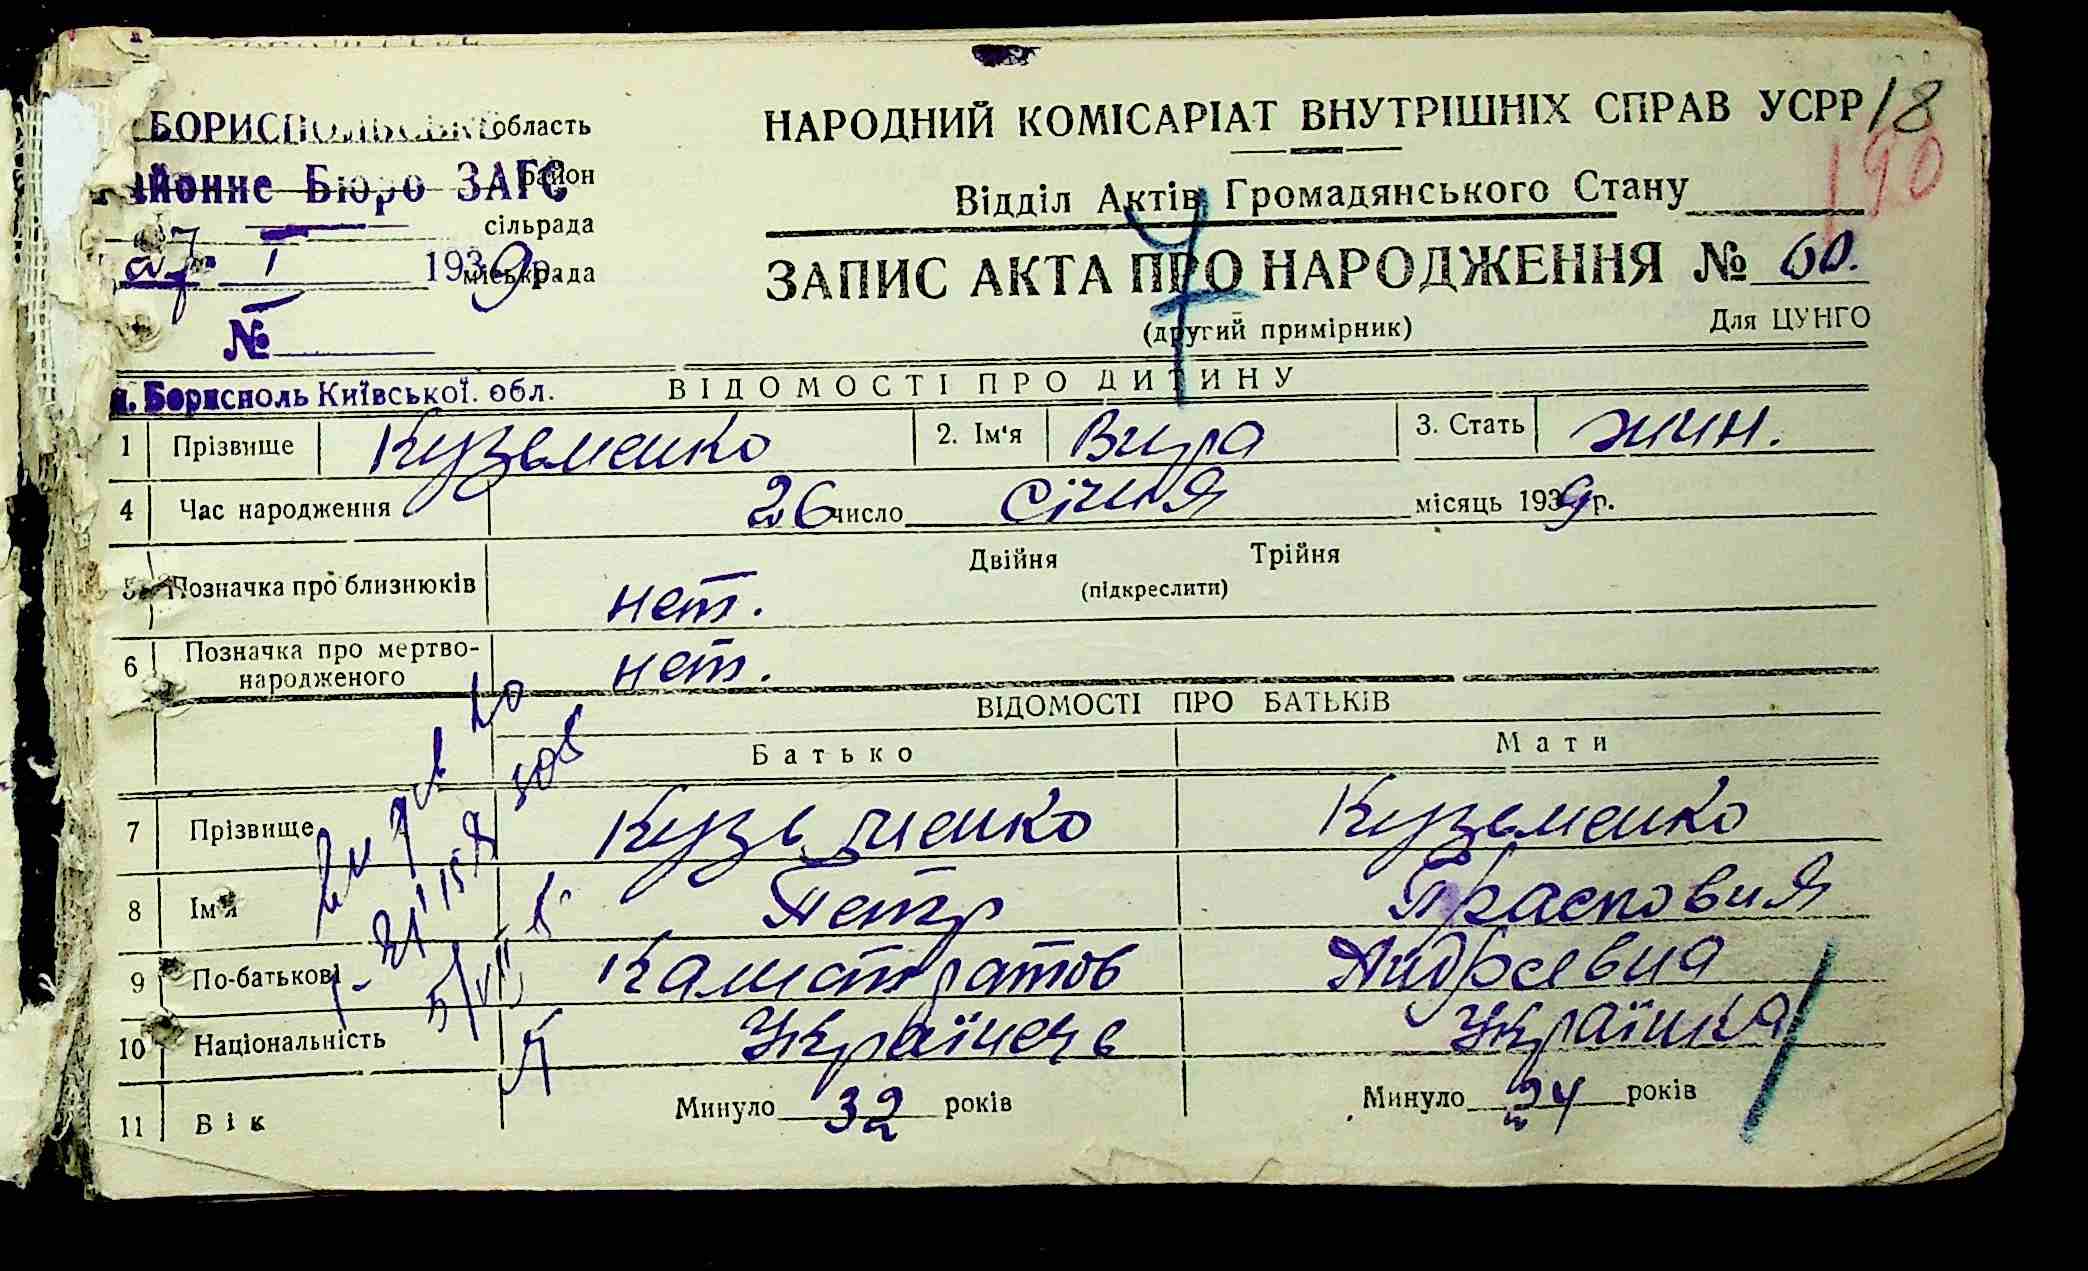 БОРИСПОЛЬСЬКЕ область
районне Бюро ЗАГС район
сільрада
27 I 1939р. міськрада
№
м. Бориспoль Київської. обл.
НАРОДНИЙ КОМІСАРІАТ ВНУТРІШНІХ СПРАВ УСРР 18
190
Відділ Актів Громадянського Стану
ЗАПИС АКТА ПРО НАРОДЖЕННЯ № 60.
(другий примірник) Для ЦУНГО
ВІДОМОСТІ ПРО ДИТИНУ
1 Прізвище Кузьменко 2. Ім'я Вира 3. Стать жин.
4 Час народження 26 число січня місяць 1939 р.
5 Позначка про близнюків нет. Двійня Трійня
(підкреслити)
6 Позначка про мертво-
народженого нет.
ВІДОМОСТІ ПРО БАТЬКІВ
Батько Мати
7 Прізвище Кузьменко Кузьменко
8 Ім'я Петр Прасковия
9 По-батькові Калистратов Андреевна
10 Національність Українець Українка
11 Вік Минуло 32 років Минуло 24 років